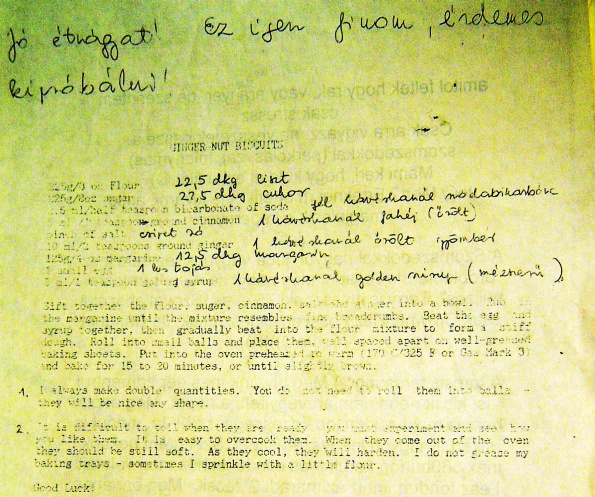 Jó étvágyat! Ez igen finom, érdemes
kipróbálni!
GINGER NUT BISCUITS
225g/8 oz Flour 22,5 dkg liszt
225g/8oz sugar 22,5 dkg cukor
2.5 ml/half teaspoon bicarbonate of soda fél kávéskanál szódabikarbóna
teaspoon ground cinnamon 1 kávéskanál fahéj (őrölt)
pinch of salt csipet só
10 ml/2 teaspoons ground ginger 1 kávéskanál őrölt gyömbér
125g/4 oz margarine 12,5 dkg margarin
1 small egg 1 kis tojás
5 ml/1 teaspoon golden syrup 1 kávéskanál golden sirup (mézszerű)
Sift together the flour, sugar, cinnamon, salt and ginger into a bowl. Rub in
the margarine until the mixture resembles fine breadcrumbs. Beat the egg and
syrup together, then gradually beat into the flour mixture to form a stiff
dough. Roll into small balls and place them, well spaced apart on well-greased
baking sheets. Put into the oven preheated to warm (170 C/325 F or Gas Mark 3)
and bake for 15 to 20 minutes, or until slightly brown.
1. I always make double quantities. You do not need to roll them into balls -
they will be nice any shape.
2. It is difficult to tell when they are ready - you must experiment and see how
you like them. It is easy to overcook them. When they come out of the oven
they should be still soft. As they cool, they will harden. I do not grease my
baking trays - sometimes I sprinkle with a little flour.
Good Luck!